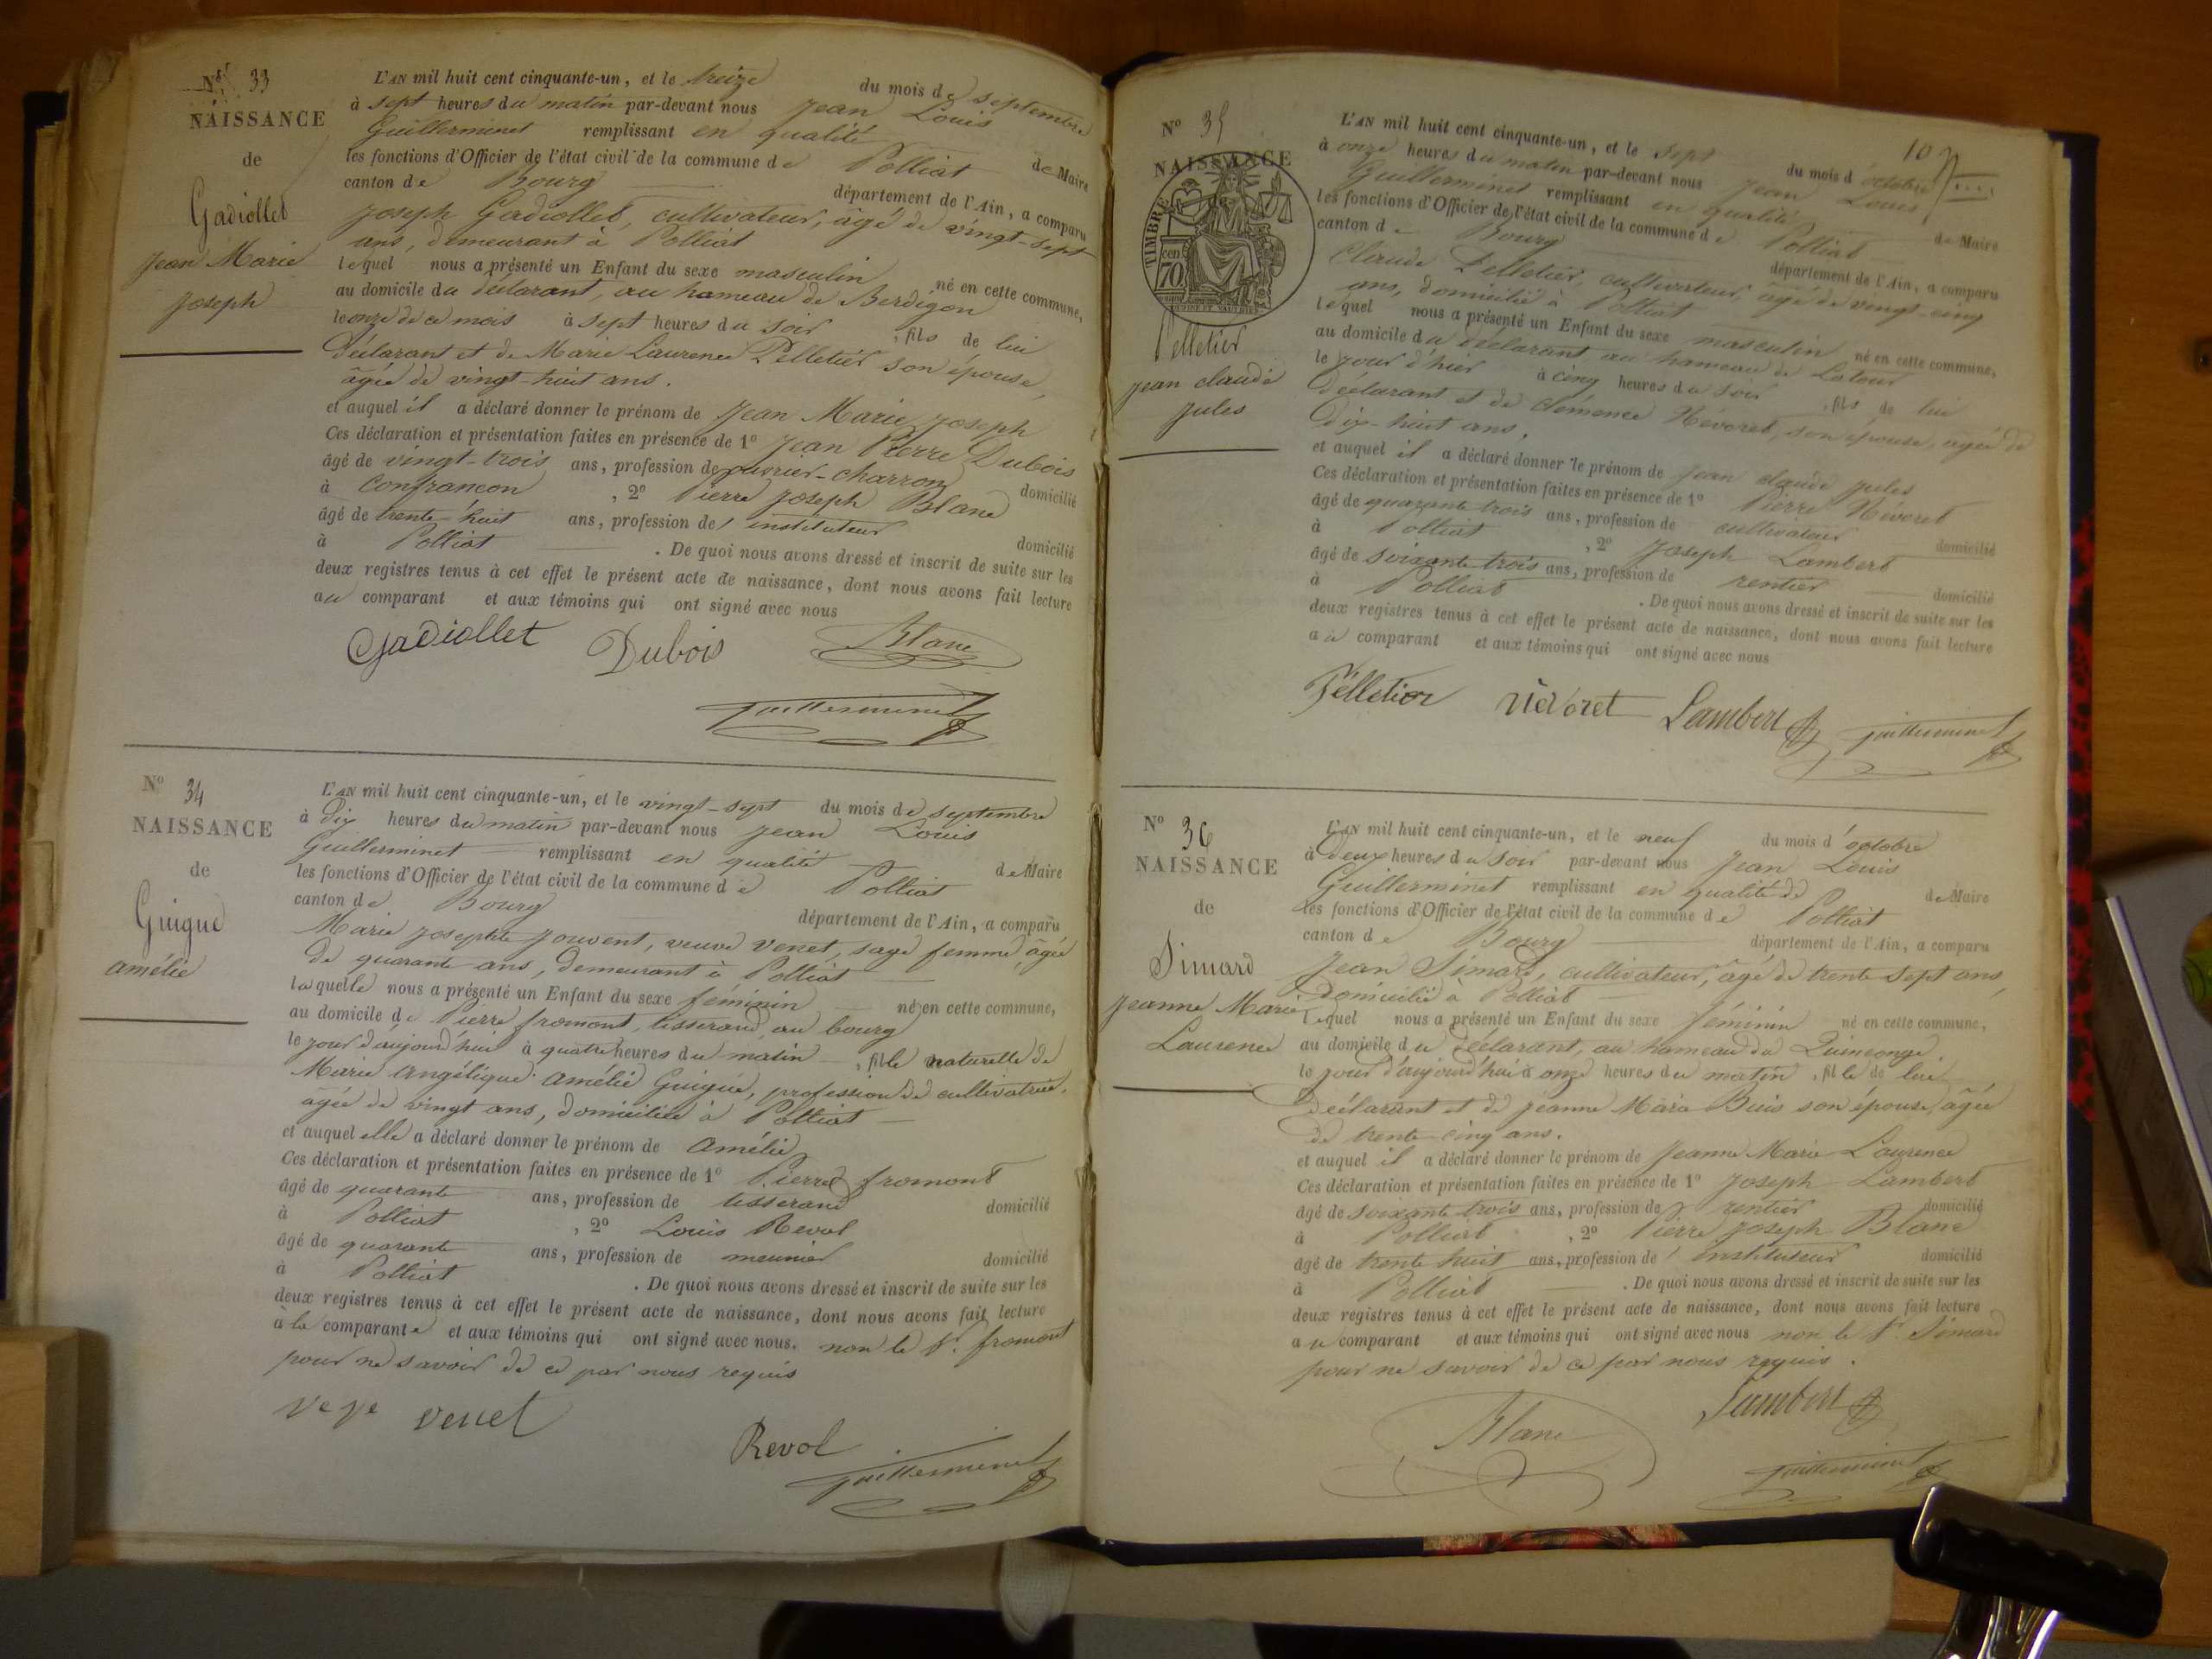 N° 33
NAISSANCE
de
Gadiollet
Jean Marie
Joseph
L'AN mil huit cent cinquante-un, et le treize du mois de septembre
à sept heures du matin par-devant nous Jean Louis
Guillerminet remplissant en qualité de Maire
les fonctions d'Officier de l'état civil de la commune de Polliat
canton de Bourg département de l'Ain, a comparu
Joseph Gadiollet, cultivateur, âgé de vingt-sept
ans, demeurant à Polliat
lequel nous a présenté un Enfant du sexe masculin né en cette commune,
au domicile du déclarant, au hameau de Berdegon
le onze de ce mois à sept heures du soir, fils de lui
déclarant et de Marie Laurence Pelletier son épouse,
âgée de vingt-huit ans.
et auquel il a déclaré donner le prénom de Jean Marie Joseph
Ces déclaration et présentation faites en présence de 1° Jean Pierre Dubois
âgé de vingt-trois ans, profession de ouvrier-charron domicilié
à Confrançon, 2° Pierre Joseph Blanc
âgé de trente-huit ans, profession de instituteur domicilié
à Polliat. De quoi nous avons dressé et inscrit de suite sur les
deux registres tenus à cet effet le présent acte de naissance, dont nous avons fait lecture
au comparant et aux témoins qui ont signé avec nous
Gadiollet Dubois Blanc
Guillerminet
N° 34
NAISSANCE
de
Guigue
amélie
L'AN mil huit cent cinquante-un, et le vingt-sept du mois de septembre
à dix heures du matin par-devant nous Jean Louis
Guillerminet remplissant en qualité de Maire
les fonctions d'Officier de l'état civil de la commune de Polliat
canton de Bourg département de l'Ain, a comparu
Marie Josephte Jouvent, veuve Venet, sage femme, âgée
de quarante ans, demeurant à Polliat
laquelle nous a présenté un Enfant du sexe féminin né en cette commune,
au domicile de Pierre fromont, tisserand au bourg
le jour d'aujourd'hui à quatre heures du matin, fille naturelle de
Marie Angélique Amélie Guigue, profession de cultivatrice,
âgée de vingt ans, domiciliée à Polliat
et auquel elle a déclaré donner le prénom de Amélie
Ces déclaration et présentation faites en présence de 1° Pierre fromont
âgé de quarante ans, profession de tisserand domicilié
à Polliat, 2° Louis Revol
âgé de quarante ans, profession de meunier domicilié
à Polliat. De quoi nous avons dressé et inscrit de suite sur les
deux registres tenus à cet effet le présent acte de naissance, dont nous avons fait lecture
à la comparante et aux témoins qui ont signé avec nous. non le sr. fromont
pour ne savoir de ce par nous requis
Ve Venet
Revol
Guillerminet
10
N° 35
NAISSANCE
TIMBRE
70
cen
Pelletier
Jean claude
jules
L'AN mil huit cent cinquante-un, et le sept du mois d'octobre
à onze heures du matin par-devant nous Jean Louis
Guillerminet remplissant en qualité de Maire
les fonctions d'Officier de l'état civil de la commune de Polliat
canton de Bourg département de l'Ain, a comparu
Claude Pelletier, cultivateur, âgé de vingt-cinq
ans, domicilié à Polliat
lequel nous a présenté un Enfant du sexe masculin né en cette commune,
au domicile du déclarant au hameau de Latour
le jour d'hier à cinq heures du soir, fils de lui
déclarant et de clémence Névoret, son épouse, âgée de
dix-huit ans.
et auquel il a déclaré donner le prénom de Jean claude jules
Ces déclaration et présentation faites en présence de 1° Pierre Névoret
âgé de quarante trois ans, profession de cultivateur domicilié
à Polliat, 2° Joseph Lambert
âgé de soixante trois ans, profession de rentier domicilié
à Polliat. De quoi nous avons dressé et inscrit de suite sur les
deux registres tenus à cet effet le présent acte de naissance, dont nous avons fait lecture
au comparant et aux témoins qui ont signé avec nous
Pelletier névoret Lambert Guillerminet
N° 36
NAISSANCE
de
Simard
Jeanne Marie
Laurence
L'AN mil huit cent cinquante-un, et le neuf du mois d'octobre
à deux heures du soir par-devant nous Jean Louis
Guillerminet remplissant en qualité de de Maire
les fonctions d'Officier de l'état civil de la commune de Polliat
canton de Bourg département de l'Ain, a comparu
Jean Simard, cultivateur, âgé de trente sept ans,
domicilié à Polliat
lequel nous a présenté un Enfant du sexe féminin né en cette commune,
au domicile du déclarant, au hameau du Quinconge.
le jour d'aujourd'hui à onze heures du matin, fille de lui
déclarant et de Jeanne Marie Buis son épouse, âgée
de trente-cinq ans.
et auquel il a déclaré donner le prénom de Jeanne Marie Laurence
Ces déclaration et présentation faites en présence de 1° Joseph Lambert
âgé de soixante trois ans, profession de rentier domicilié
à Polliat, 2° Pierre Joseph Blanc
âgé de trente huit ans, profession de instituteur domicilié
à Polliat. De quoi nous avons dressé et inscrit de suite sur les
deux registres tenus à cet effet le présent acte de naissance, dont nous avons fait lecture
au comparant et aux témoins qui ont signé avec nous non le sr. Simard
pour ne savoir de ce par nous requis.
Lambert
Blanc
Guillerminet